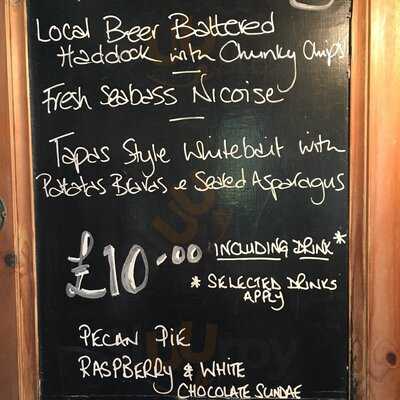 Local Beer Battered
Haddock with Chunky Chips
Fresh Seabass Nicoise
Tapas Style Whitebait with
Patatas Bravas & Seared Asparagus
£10.00 INCLUDING DRINK*
* SELECTED DRINKS
APPLY
PECAN PIE
RASPBERRY & WHITE
CHOCOLATE SUNDAE